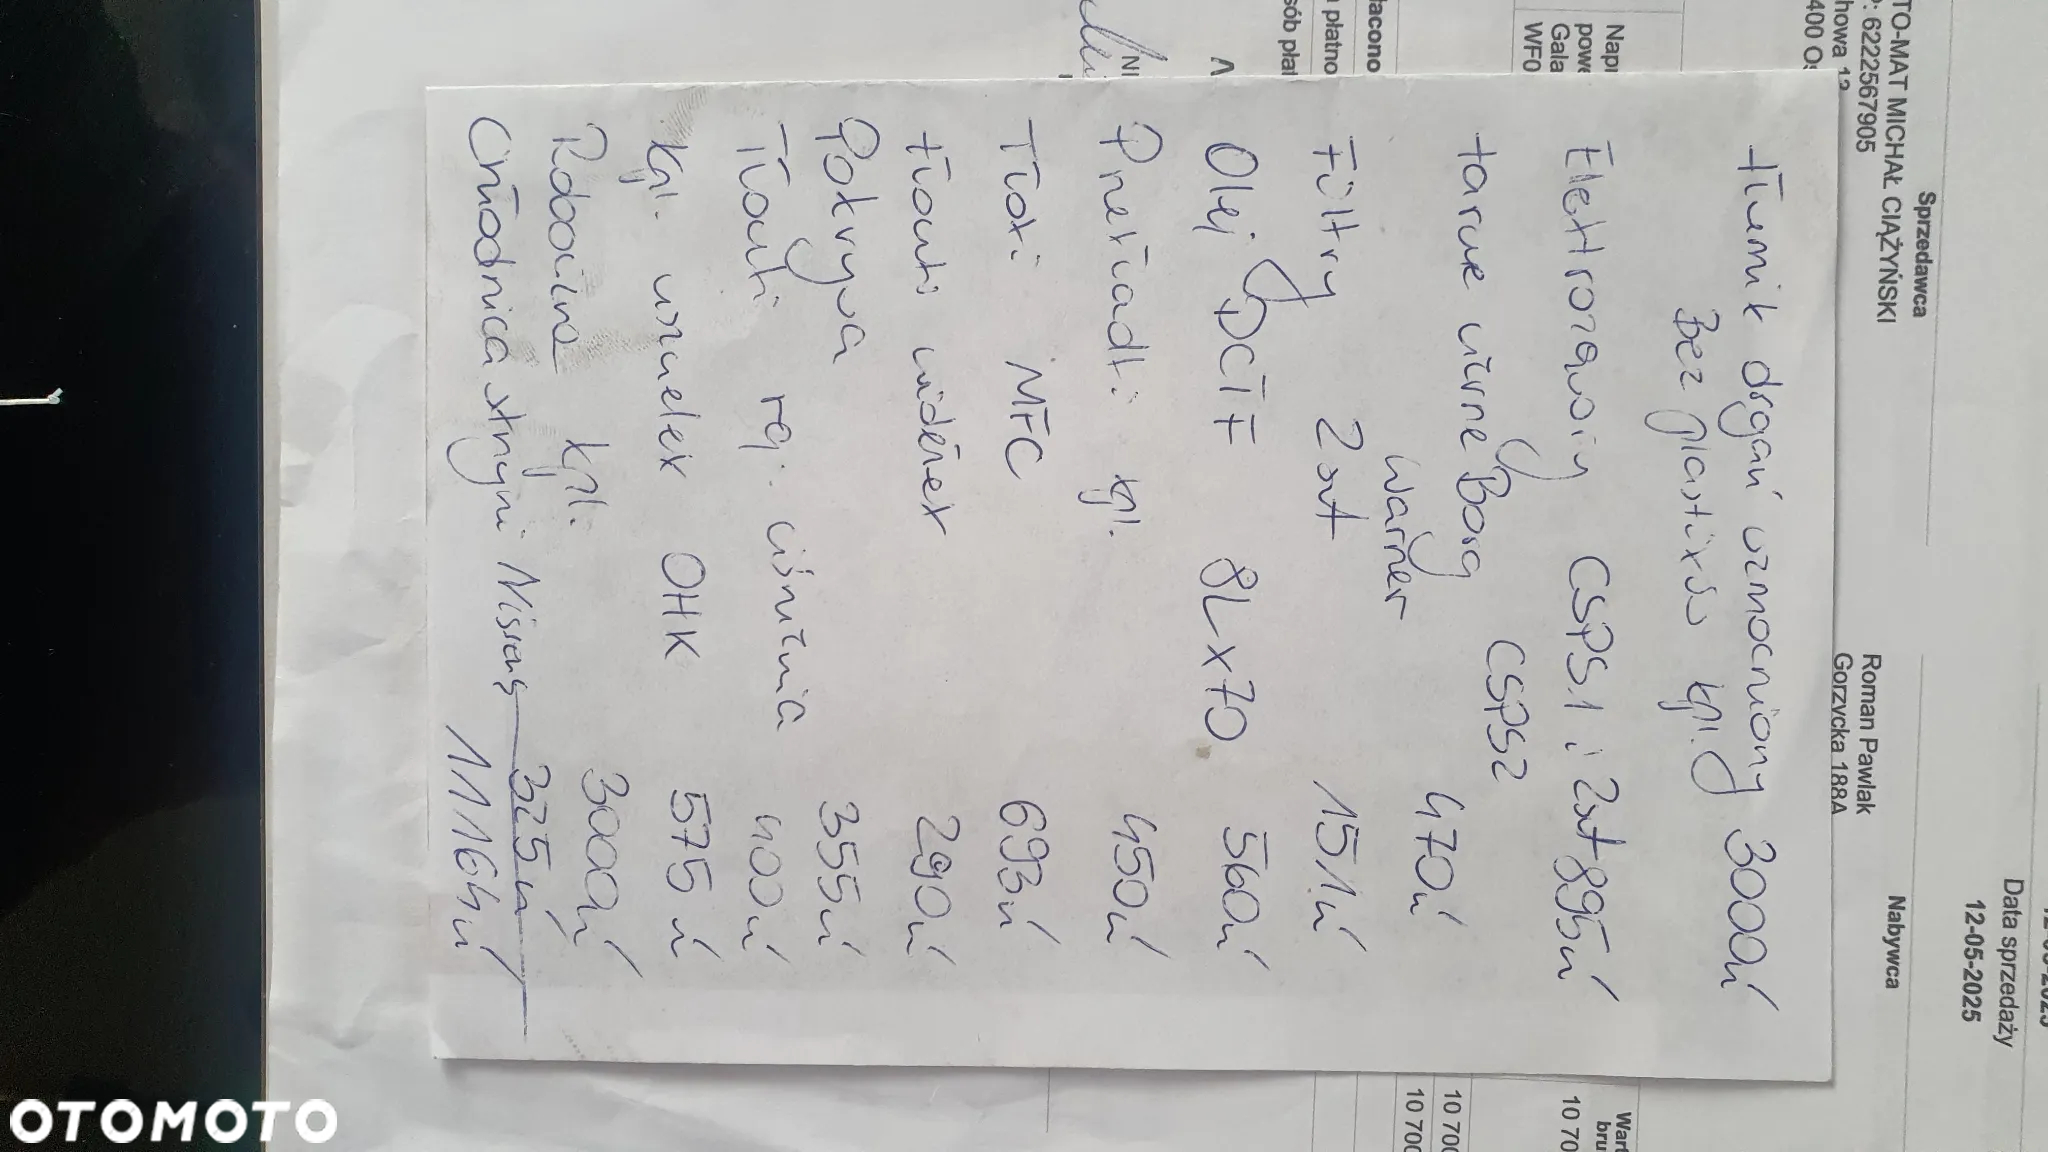 TO-MAT MICHAŁ CIĄŻYŃSKI
P: 6222567905
howa 12
400 Os
Sprzedawca
Roman Pawlak
Gorzycka 188A
Nabywca
Data sprzedaży
12-05-2025
Napr
powe
Gala
WF0
łacono
płatno
sób płat
Tłumik drgań wzmocniony 3000zł
Bez plastików kpl.
Elektrozawory CSPS1 i 2szt 895zł
CSPS2
tarcze cierne Borg
Warner 470zł
Filtry 2szt 151zł
Olej DCTF 8L x 70 560zł
Przekładki kpl. 450zł
Tłoki MFC 693zł
tłoczki widełek 290zł
Pokrywa 355zł
Tłoczki reg. ciśnienia 400zł
kpl. uszczelek OHK 575zł
Robocizna kpl. 3000zł
Chłodnica skrzyni Nissens 325zł
11164zł
Wart
bru
10 700
10 700
10 70
OTOMOTO